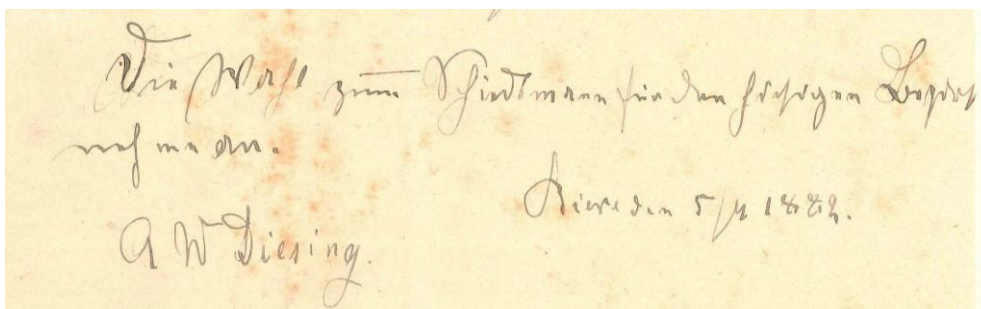 Die Wahl zum Schiedsmann für den hiesigen Bezirk
nehme an.
den 5/4 1882.
A W Diesing.